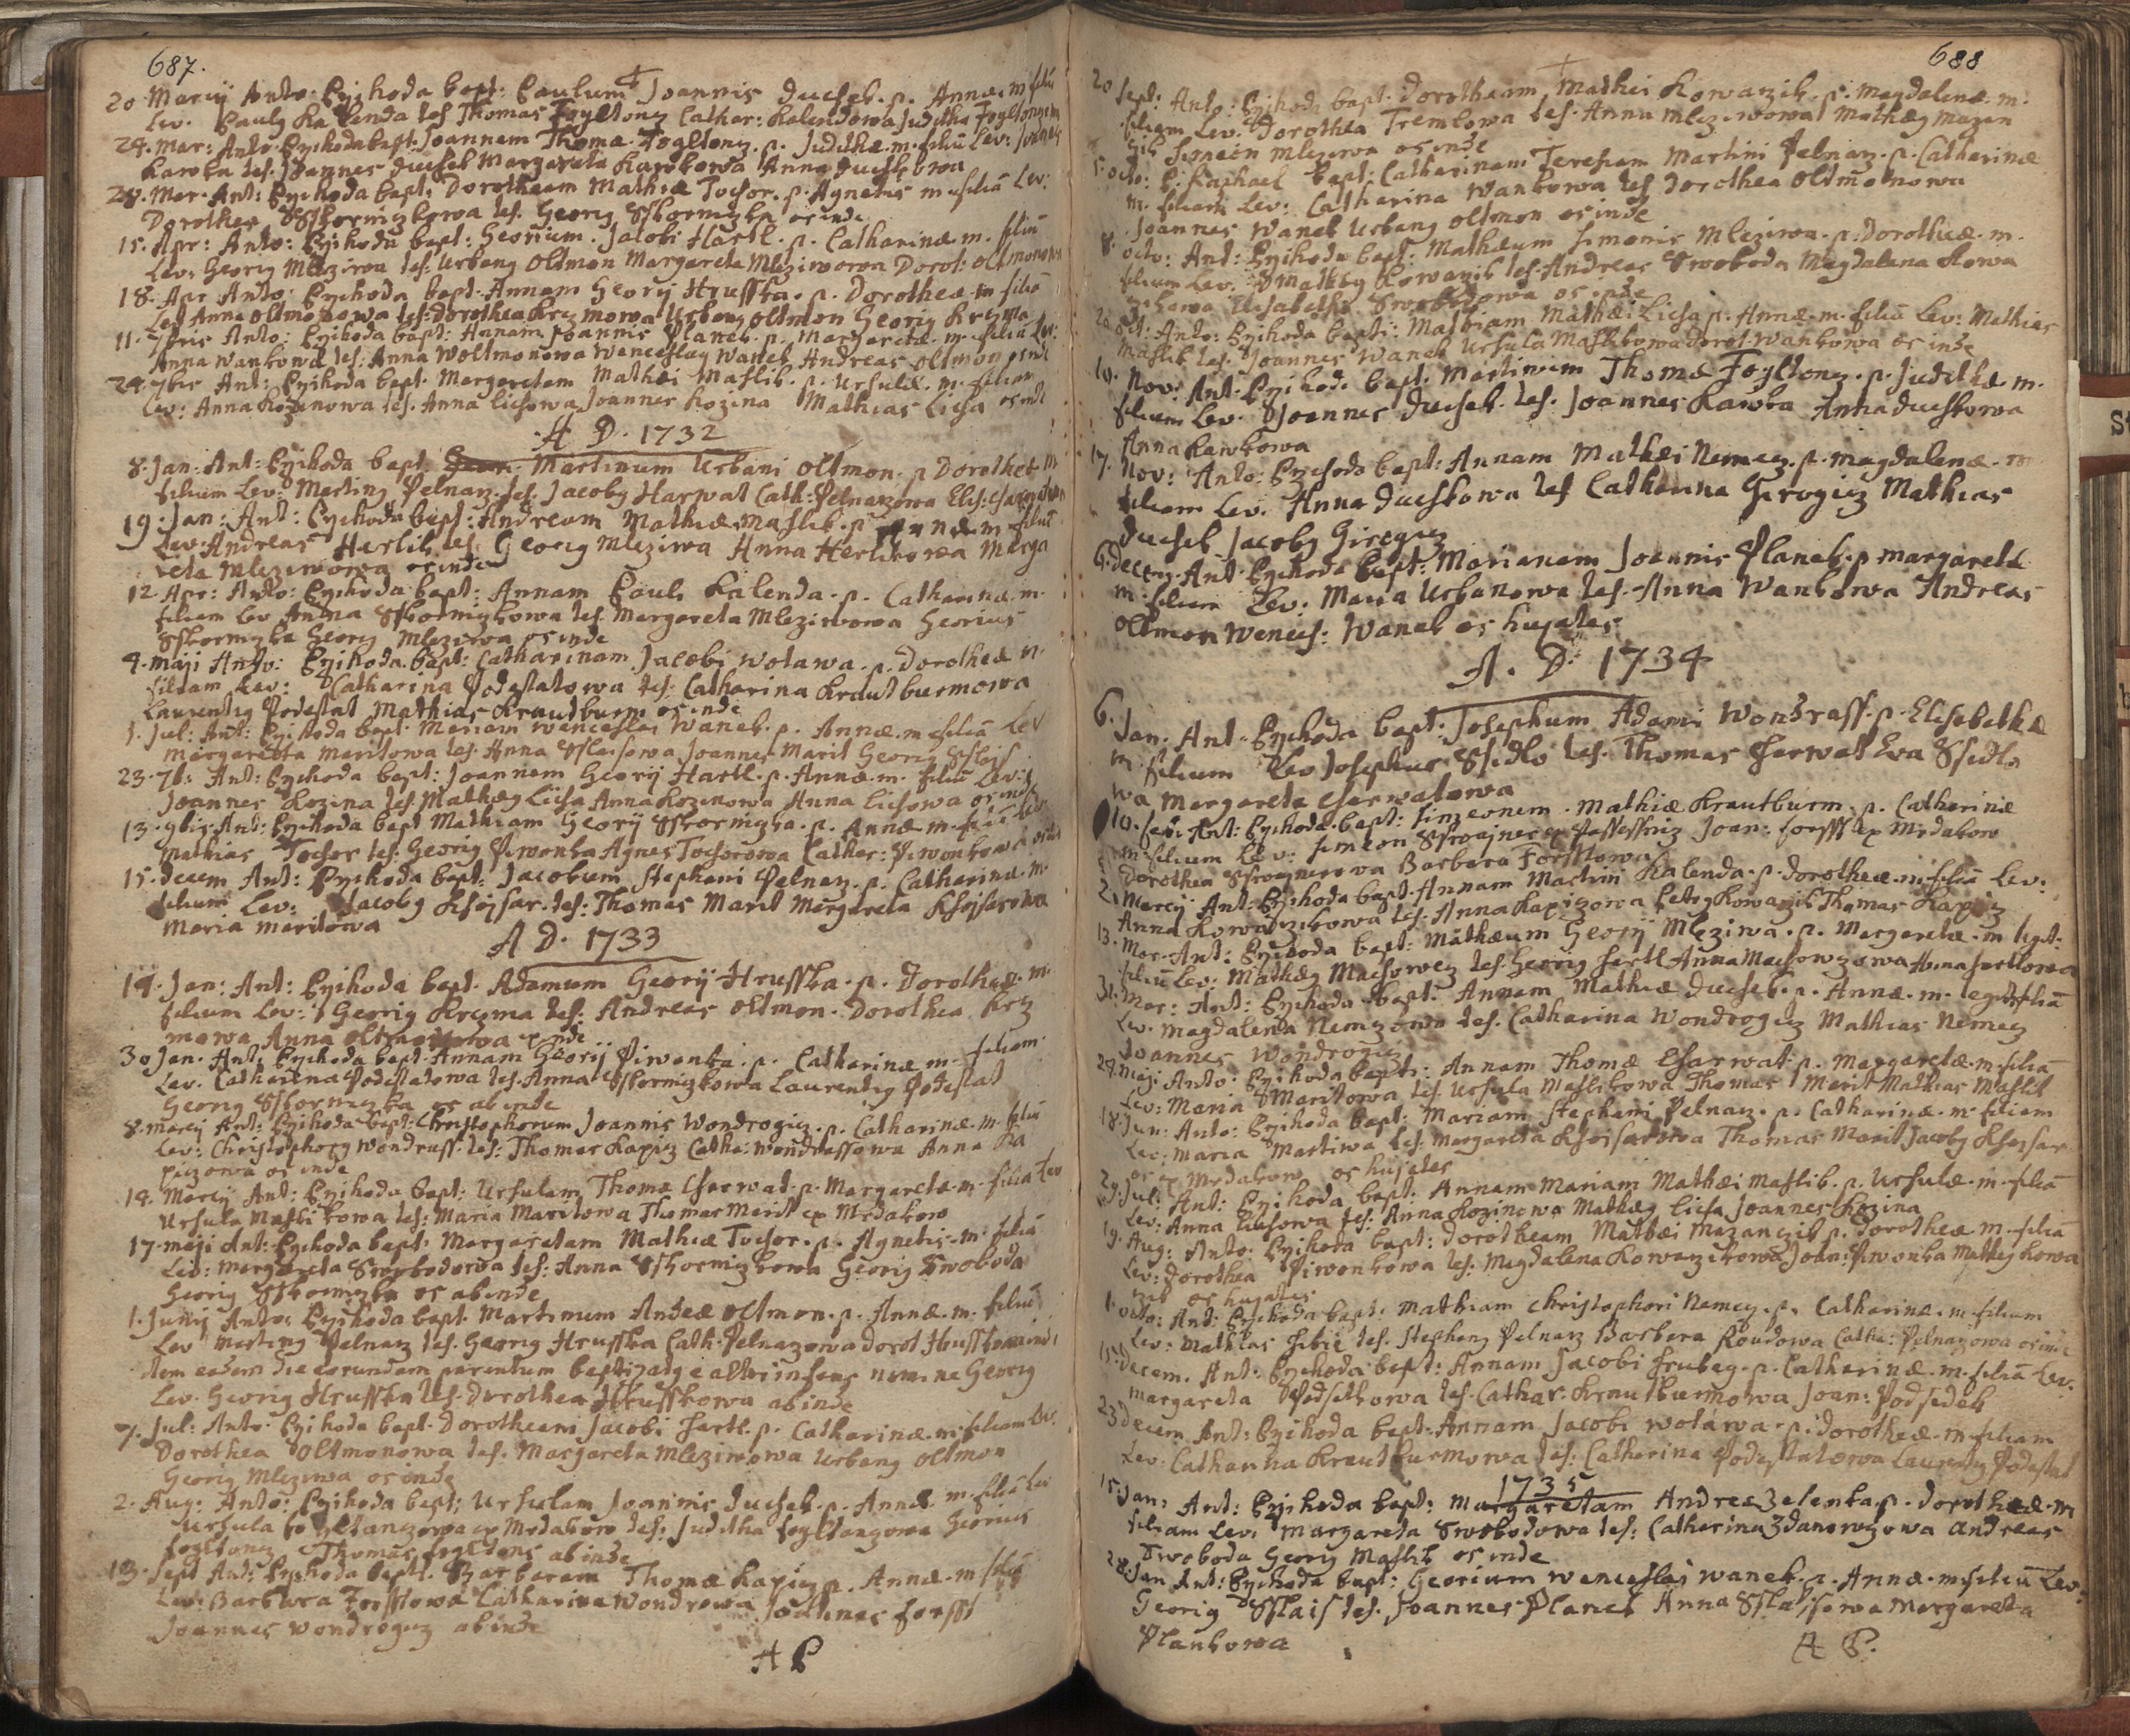 687.
20. Marcÿ Anto: Pÿihoda bapt: Paulum Joannis Duchek. p. Annæ. m filiū
Lev. Paulg Kalenda tes Thomas Fogltonz Cathar: Kalendowa Juditha
24. Mar: Anto Pÿihoda bapt: Joannem Thomæ Fogltonz. p. Judithæ. m. filiū Lev:
Kawka tes. Joannes Duchek Margareta Kawkowa Anna Duchkowa
28. Mar. Ant: Pÿihoda bapt: Dorotheam Mathiæ Tochor. p. Agnetis m filiā Lev:
Dorothea Sskornizkowa tes. Georg Sskornizka os inde
15. Apr: Anto: Pÿihoda bapt: Georium. Jacobi Hartl. p. Catharinæ. m. filiū
Lev: Georg Mleziwa tes: Urbang Oltmon Margareta Mleziwowa Dorot: Oltmonowa
18. Apr Anto: Pÿihoda bapt. Annam Georÿ Hrusska. p. Dorotheæ. m filiā
Lev Anna Oltmonowa tes: Dorothea Krzmowa Urbang Oltmon Georg Krczma
11. Anto: Pÿihoda bapt: Annam Joannis Planek. p. Margaretæ. m. filiā Lev:
Anna Wankowa tes: Anna Woltmonowa Wenceslag Wanek Andreas Oltmon os inde
24. 7bris Ant: Pÿihoda bapt. Margaretam Mathæi Maslik. p. Ursulæ. m. filiam
Lev: Anna Kozinowa tes. Anna Lichowa Joannes Kozina Mathias Licha os inde
A D. 1732
8. Jan: Ant: Pÿihoda bapt. Martinum Urbani Oltmon. p Dorotheæ m
filium Lev: Marting Pelnarz. tes. Jacobg Harwat Cath: Pelnarzowa Elis:
19. Jan: Ant: Pÿihoda bapt: Andream Mathiæ Maslik. p. Annæ m filiū
Lev. Andreas Herlik tes Georg Mleziwa Anna Herlikowa Marga
reta Mleziwowa os inde
12 Apr: Anto: Pÿihoda bapt: Annam Pauli Kalenda. p. Catharinæ. m.
filiam Lev Anna Sskornizkowa tes. Margareta Mleziwowa Georius
Sskornizka Georg Mleziwa os inde
4. Maji Anto: Pÿihoda bapt: Catharinam Jacobi Wotawa. p. Dorotheæ m.
filiam Lev: Catharina Podestatowa tes: Catharina Krautburmowa
Laurentig Podestat Mathias Krautburm os inde
1. Jul: Ant: Pÿihoda bapt. Mariam Wenceslai Wanek. p. Annæ. m filiā Lev
Margaretta Maritowa tes. Anna Sslaisowa Joannes Marit Georg Sslais
23. 7b: Ant: Pÿihoda bapt: Joannem Georÿ Hartl. p. Annæ. m. filiū Lev:
Joannes Kozina tes. Mathæg Licha Anna Kozinowa Anna Lichowa os inde
13. 9bris Ant: Pÿihoda bapt Mathiam Georÿ Sskornizka. p. Annæ m. filiū Lev
Mathias Tochor tes: Georg Piwonka Agnes Tochorowa Cathar: Piwonkowa
15. Decem Ant: Pÿihoda bapt: Jacobum Stephani Pelnarz. p. Catharinæ. m.
filium Lev: Jacobg Khojsar. tes: Thomas Marit Margareta Khojsarowa
Maria Maritowa
A D. 1733
14. Jan: Ant: Pÿihoda bapt. Adamum Georÿ Hrusska. p. Dorotheæ. m.
filium Lev: Georg Krczma tes: Andreas Oltmon. Dorothea Krz
mowa Anna Oltmonowa
30 Jan. Ant: Pÿihoda bapt. Annam Georÿ Piwonka. p. Catharinæ m. filiam.
Lev. Catharina Podestatowa tes. Anna Sskornizkowa Laurentig Podestat
Georg Sskornizka os ab inde
8. Marcÿ Ant: Pÿihoda bapt: Christophorum Joannis Wondrogicz. p. Catharinæ. m. filiū
Lev: Christophorg Wondrass. tes: Thomas Kapicz Catha: Wondrassowa Anna Ka
piczowa os inde
14. Marcÿ Ant: Pÿihoda bapt: Ursulam Thomæ Charwat. p. Margaretæ. m. filiā Lev
Ursula Maslikowa tes: Maria Maritowa Thomas Marit ex Mrdakow
17. Maji Ant: Pÿihoda bapt: Margaretam Mathiæ Tochor. p. Agnetis. m. filiā
Lev: Margareta Swobodowa tes: Anna Sskornizkowa Georg Swoboda
Georg Sskornizka os ab inde
1. Junÿ Anto: Pÿihoda bapt. Martinum Andreæ Oltmon. p. Annæ. m. filiū
Lev Marting Pelnarz tes. Georg Hrusska Cath. Pelnarzowa Dorot Hrusskowa inde
Item eadem die eorundem parentum baptizatg e alter infans nomine Georg
Lev. Georg Hrusska tes. Dorothea Hrusskowa ab inde
7. Jul: Anto: Pÿihoda bapt. Dorotheam Jacobi Hartl. p. Catharinæ. m. filiam Lev.
Dorothea Oltmonowa tes. Margareta Mleziwowa Urbang Oltmon
Georg Mleziwa os inde
2. Aug: Anto: Pÿihoda bapt: Ursulam Joannis Duchek. p. Annæ. m. filiā Lev
Ursula Fogltanzowa ex Mrdakow tes: Juditha Fogltanzowa Georius
Fogltonz Thomas Fogltons ab inde
13. Sept Ant: Pÿihoda bapt. Barbaram Thomæ Kapicz p. Annæ. m filiā
Lev: Barbara Forsstowa Catharina Wondrowa Joannes Forsst
Joannes Wondrogicz ab inde
A P
688
20 Sept: Anto: Pÿihoda bapt. Dorotheam Mathei Kowarzik. p. Magdalenæ. m.
filiam Lev. Dorothea Tremlowa tes. Anna Mleziwowa Mathæg Mazan
zik Simeon Mleziwa os inde
5. Octo: P. Raphael bapt: Catharinam Teresiam Martini Pelnarz. p. Catharinæ
m. filiam Lev: Catharina Wankowa tes Dorothea Oltmonowa
Joannes Wanek Urbang Oltmon os inde
8. Octo: Ant: Pÿihoda bapt: Mathæum Simonis Mleziwa. p. Dorotheæ. m.
filium Lev: Mathæg Kowarzik tes. Andreas Swoboda Magdalena Kowa
rzikowa Elisabetha Swobodowa os inde
20 Oct: Anto: Pÿihoda bapt: Mathiam Mathæi Licha p. Annæ. m. filiū Lev: Mathias
Maslik tes. Joannes Wanek Ursula Maslikowa Dorot. Wankowa os inde
10. Nov: Ant. Pÿihoda bapt. Martinum Thomæ Fogltonz. p. Judithæ m.
filium Lev. Joannes Duchek. tes. Joannes Kawka Anna Duchkowa
Anna Kawkowa
17. Nov: Anto: Pÿihoda bapt: Annam Mathæi Nemecz. p. Magdalenæ. m
filiam Lev. Anna Duchkowa tes Catharina Girogicz Mathias
Duchek Jacobg Girogicz
6. Decem. Ant. Pÿihoda bapt: Marianam Joannis Planek. p Margaretæ
m. filiam Lev: Maria Urbanowa tes. Anna Wankowa Andreas
Oltmon Wences: Wanek os hujates
A. D. 1734
6. Jan: Ant. Pÿihoda bapt: Josephum Adami Wondrass. p. Elisabethæ
m. filium Lev Josephus Ssidlo tes. Thomas Charwat Eva Ssidlo
wa Margareta Charwatowa
10. Feb: Ant: Pÿihoda bapt: Simeonem. Mathiæ Krautburm. p. Catharinæ
m. filium Lev: Simeon Joan: Forsst ex Mrdakow
Dorothea Barbara Forsstowa
2. Marcÿ Ant. Pÿihoda bapt. Annam Martini Kalenda. p. Dorotheæ. m. filiā Lev:
Anna Kowarzikowa tes. Anna Kapiczowa Petrg Kowarzik Thomas Kapicz
13. Mar. Ant: Pÿihoda bapt: Mathæum Georÿ Mleziwa. p. Margaretæ. m legit:
filiū Lev: Mathæg Machowecz tes. Georg Hartl Anna Machowzowa Anna Hartlowa
31. Mar: Ant: Pÿihoda bapt: Annam Mathiæ Duchek. p. Annæ. m. legit: filiā
Lev. Magdalena Nemczowa tes. Catharina Wondrogicz Mathias Nemecz
Joannes Wondrogicz
24. Maji Anto: Pÿihoda bapt: Annam Thomæ Charwat. p. Margaretæ. m. filiā
Lev: Maria Maritowa tes. Ursula Maslikowa Thomas Marit Mathias Maslik
18. Jun: Anto: Pÿihoda bapt: Mariam Stephani Pelnarz. p. Catharinæ. m. filiam
Lev: Maria Martiwa tes. Margareta Khojsarowa Thomas Marit Jacobg Khojsar
os ex Mrdakow os hujates
29. Jul: Ant: Pÿihoda bapt: Annam Mariam Mathæi Maslik. p. Ursulæ. m. filiā
Lev: Anna Lichowa tes: Anna Kozinowa Mathæg Licha Joannes Kozina
19. Aug: Anto: Pÿihoda bapt: Dorotheam Mathæi Mazanczik p. Dorotheæ. m. filiā
Lev: Dorothea Piwonkowa tes. Magdalena Kowarzikowa Joan: Piwonka Matheg Kowa
rzik os hujates
1. Octo: Ant: Pÿihoda bapt: Mathiam Christophori Nemecz. p. Catharinæ. m. filium
Lev: Mathias tes. Stephang Pelnarz Barbara Roudowa Catha: Pelnarzowa os inde
15. Decem. Ant: Pÿihoda bapt: Annam Jacobi Hrubeg. p. Catharinæ. m. filiā Lev.
Margareta Podsetkowa tes. Cathar. Krautburmowa Joan: Podsedek
23 Decem Ant: Pÿihoda bapt. Annam Jacobi Wotawa. p. Dorotheæ. m filiam
Lev: Catharina Krautburmowa tes: Catharina Podestatowa Laurentg Podestat
1735
15. Jan: Ant: Pÿihoda bapt: Margaretam Andreæ Zelenka. p. Dorotheæ. m
filiam Lev: Margareta Swobodowa tes: Catharina Zdanowzowa Andreas
Swoboda Georg Maslik os inde
28. Jan Ant: Pÿihoda bapt: Georium Wenceslai Wanek. p. Annæ. m. filiū Lev:
Georg Sslais tes. Joannes Planek Anna Sslaisowa Margareta
Plankowa
A P.